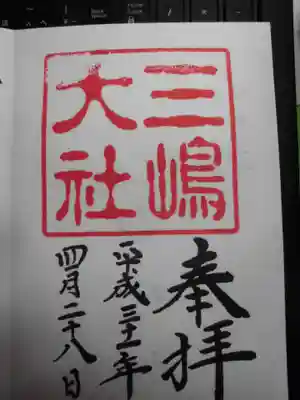 三嶋
大社
奉拝
平成三十一年
四月二十八日